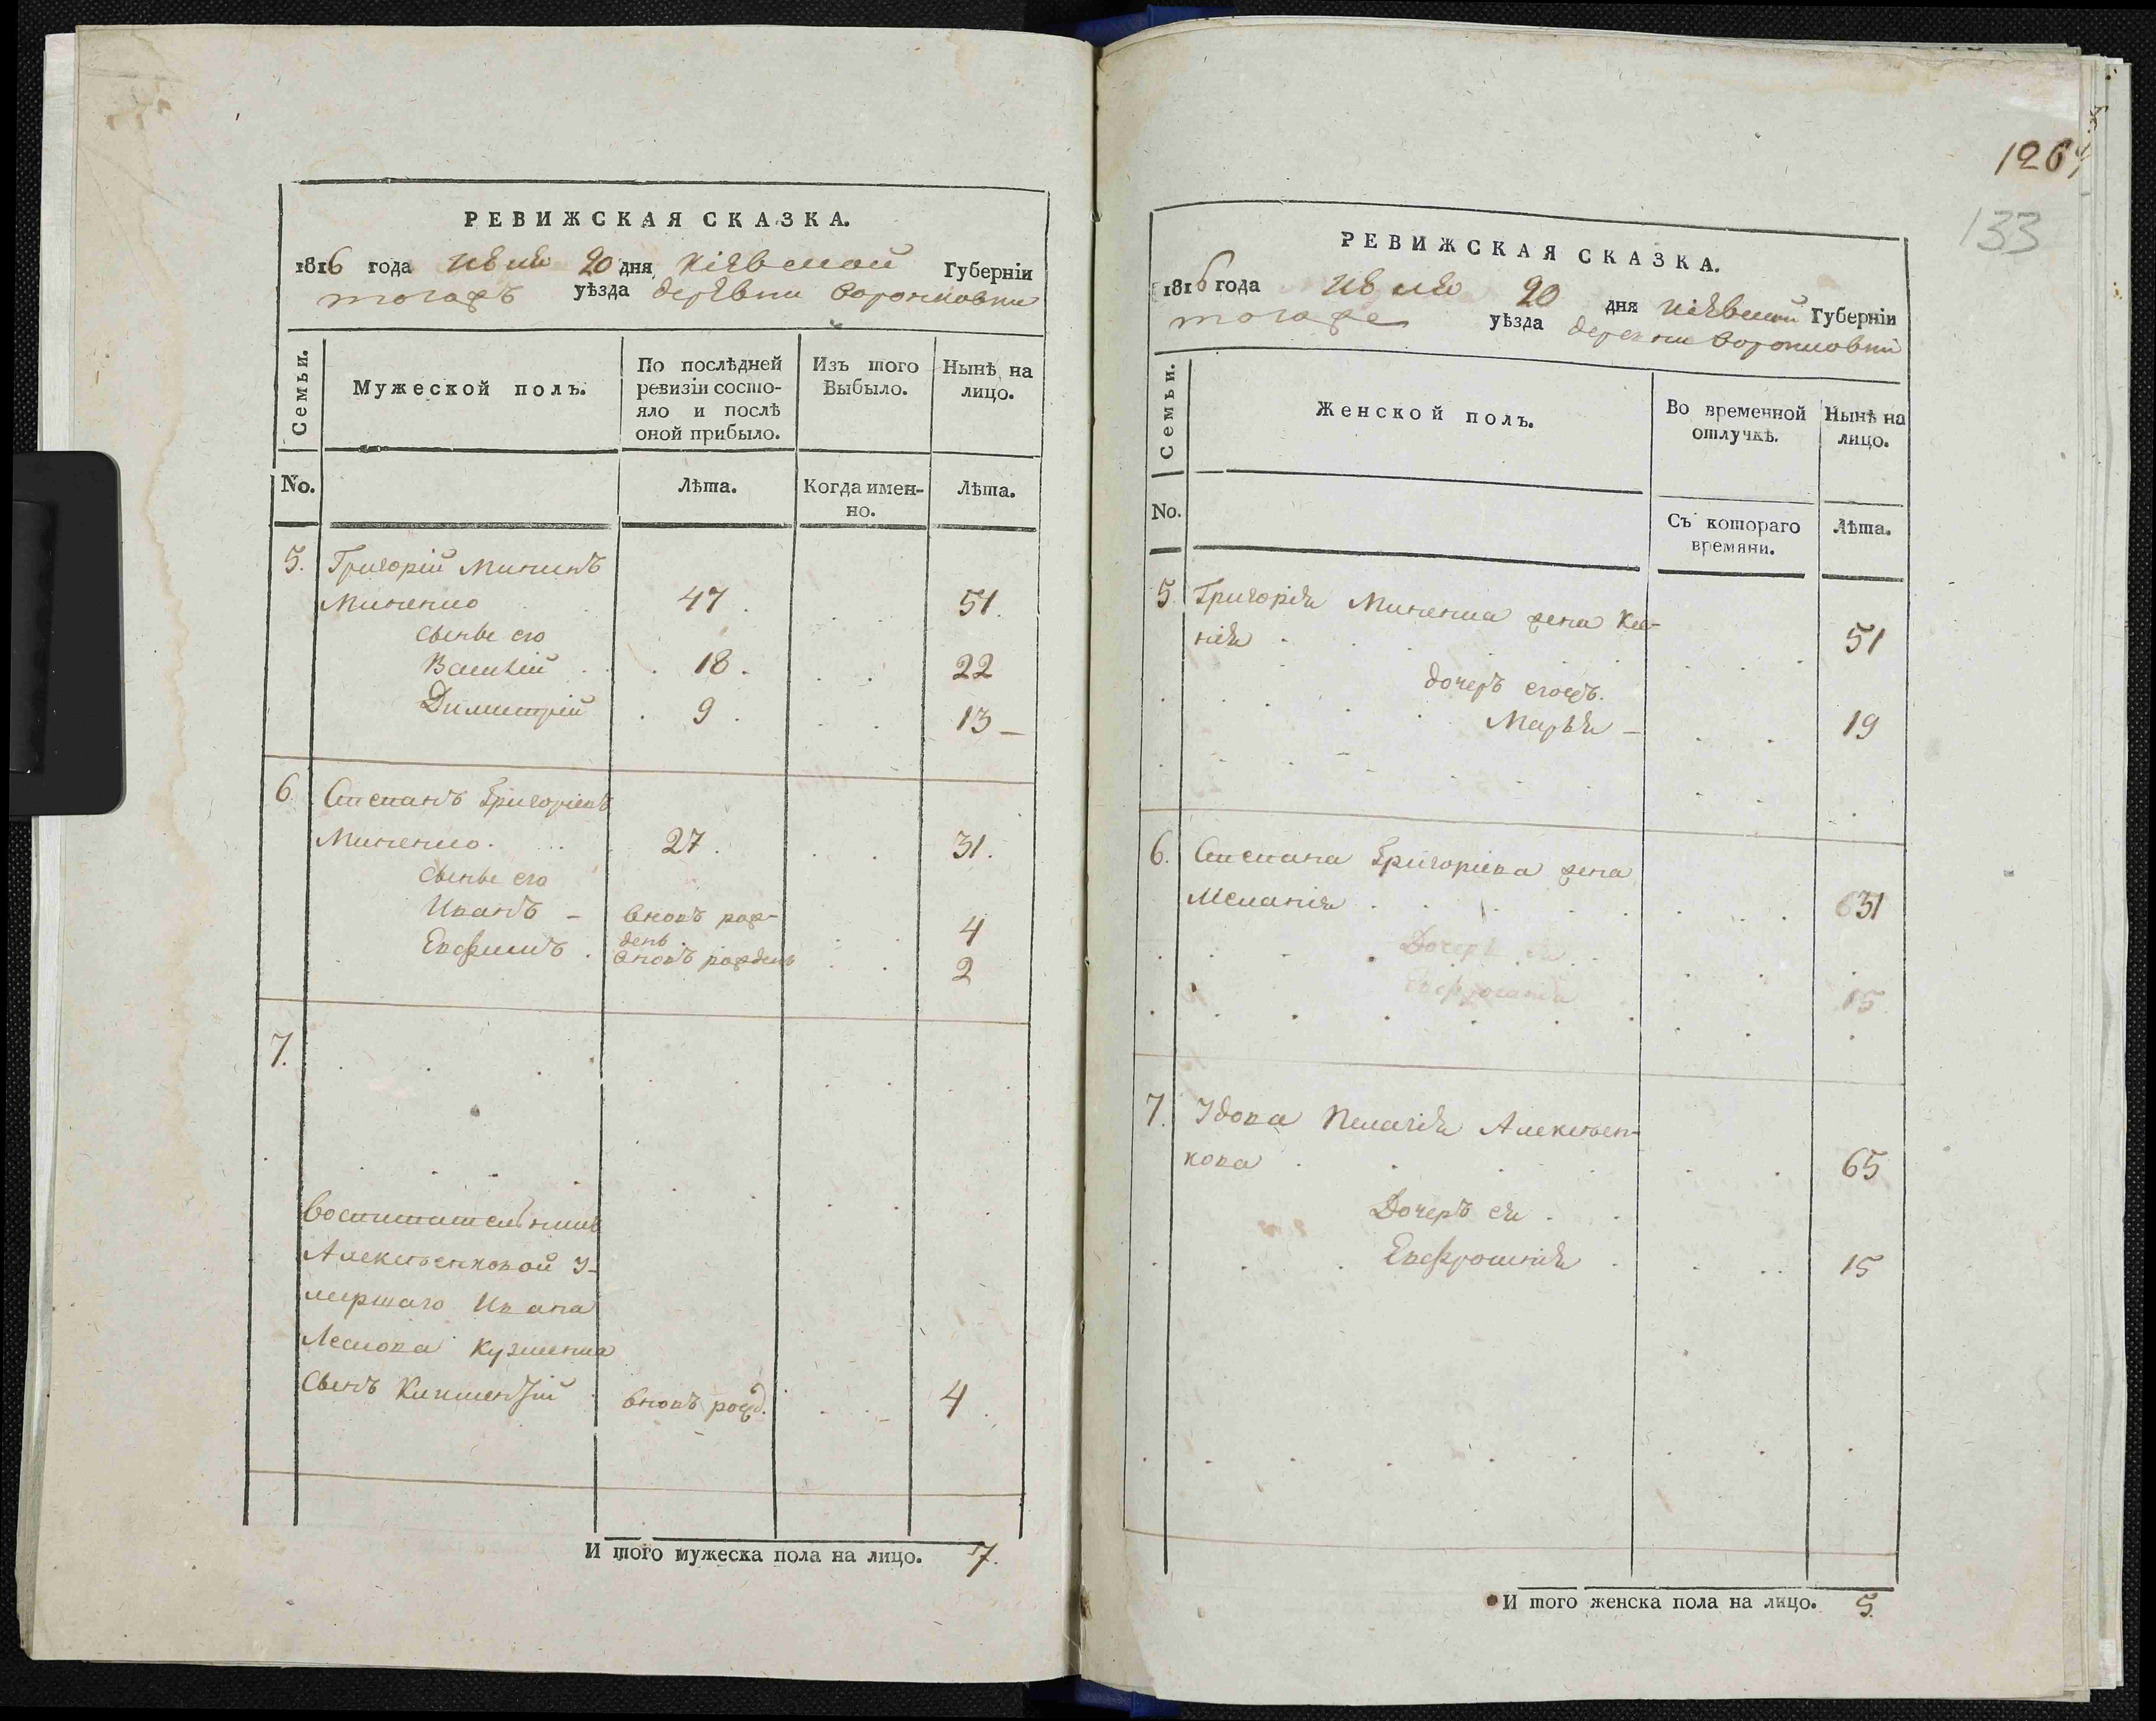 РЕВИЖСКАЯ СКАЗКА.
1816 года Июня 20 дня Кіевской Губерніи
тогожъ уѣзда деревни Воронковки
Семьи.
Мужеской полъ.
По послѣдней ревизіи состо-
яло и послѣ
оной прибыло.
Изъ того
Выбыло.
Нынѣ на
лицо.
No.
Лѣта.
Когда имен-
но.
Лѣта.
5. Григорій Мининъ
Миненко 47. 51.
сыны его
Василій 18. 22
Димитрій 9. 13
6. Степанъ Григоріевъ
Миненко. 27. 31.
сыны его
Иванъ вновь рож-
денъ 4
Евфимъ вновь рожденъ 2
7.
Воспитательницы
Алексѣенковой У-
мершаго Ивана
Кузменка
Сынъ Викентій вновь рожд. 4
И того мужеска пола на лицо. 7.
126
133
РЕВИЖСКАЯ СКАЗКА.
1816 года Июня 20 дня Кіевской Губерніи
тогоже уѣзда деревни Воронковки
Семьи.
Женской полъ.
Во временной
отлучкѣ.
Нынѣ на
лицо.
No.
Съ котораго
времяни.
Лѣта.
5. Григорія Миненка жена Ксе-
нія 51
дочеръ егожъ.
Марья 19
6. Степана Григоріева жена
Меланія 31
Дочеръ ея
15
7. Удова Пелагія Алексѣен-
кова 65
Дочеръ ея
Евфросинія 15
И того женска пола на лицо. 5.